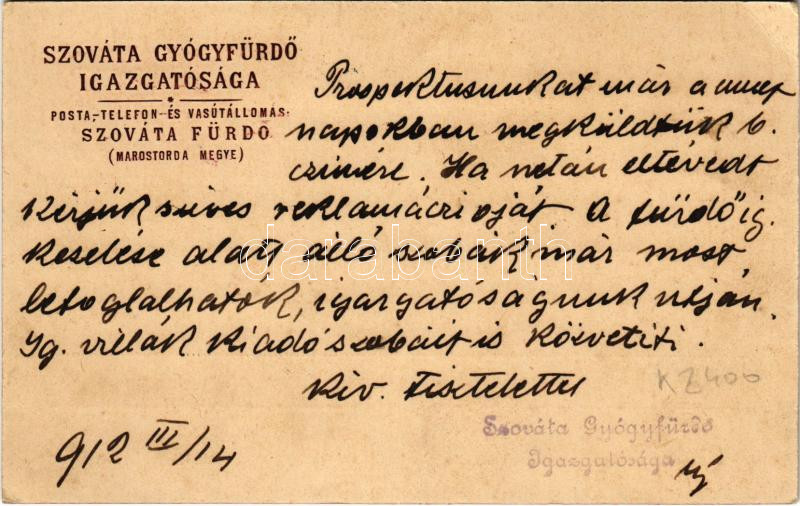 SZOVÁTA GYÓGYFÜRDŐ
IGAZGATÓSÁGA
POSTA,-TELEFON-ÉS VASÚTÁLLOMÁS:
SZOVÁTA FÜRDŐ
(MAROSTORDA MEGYE)
Prospektusunkat már a
napokban megküldtük b.
czimére. Ha netán eltévedt
kérjük szives reklamáczioját A fürdőig.
kezelése alatt álló szobák már most
lefoglalhatók, igazgatóságunk utján.
Ig. villák kiadó szobáit is közvetiti.
Kiv. tisztelettel
912 III/14
Szováta Gyógyfürdő
Igazgatósága
KZ400
darabanth